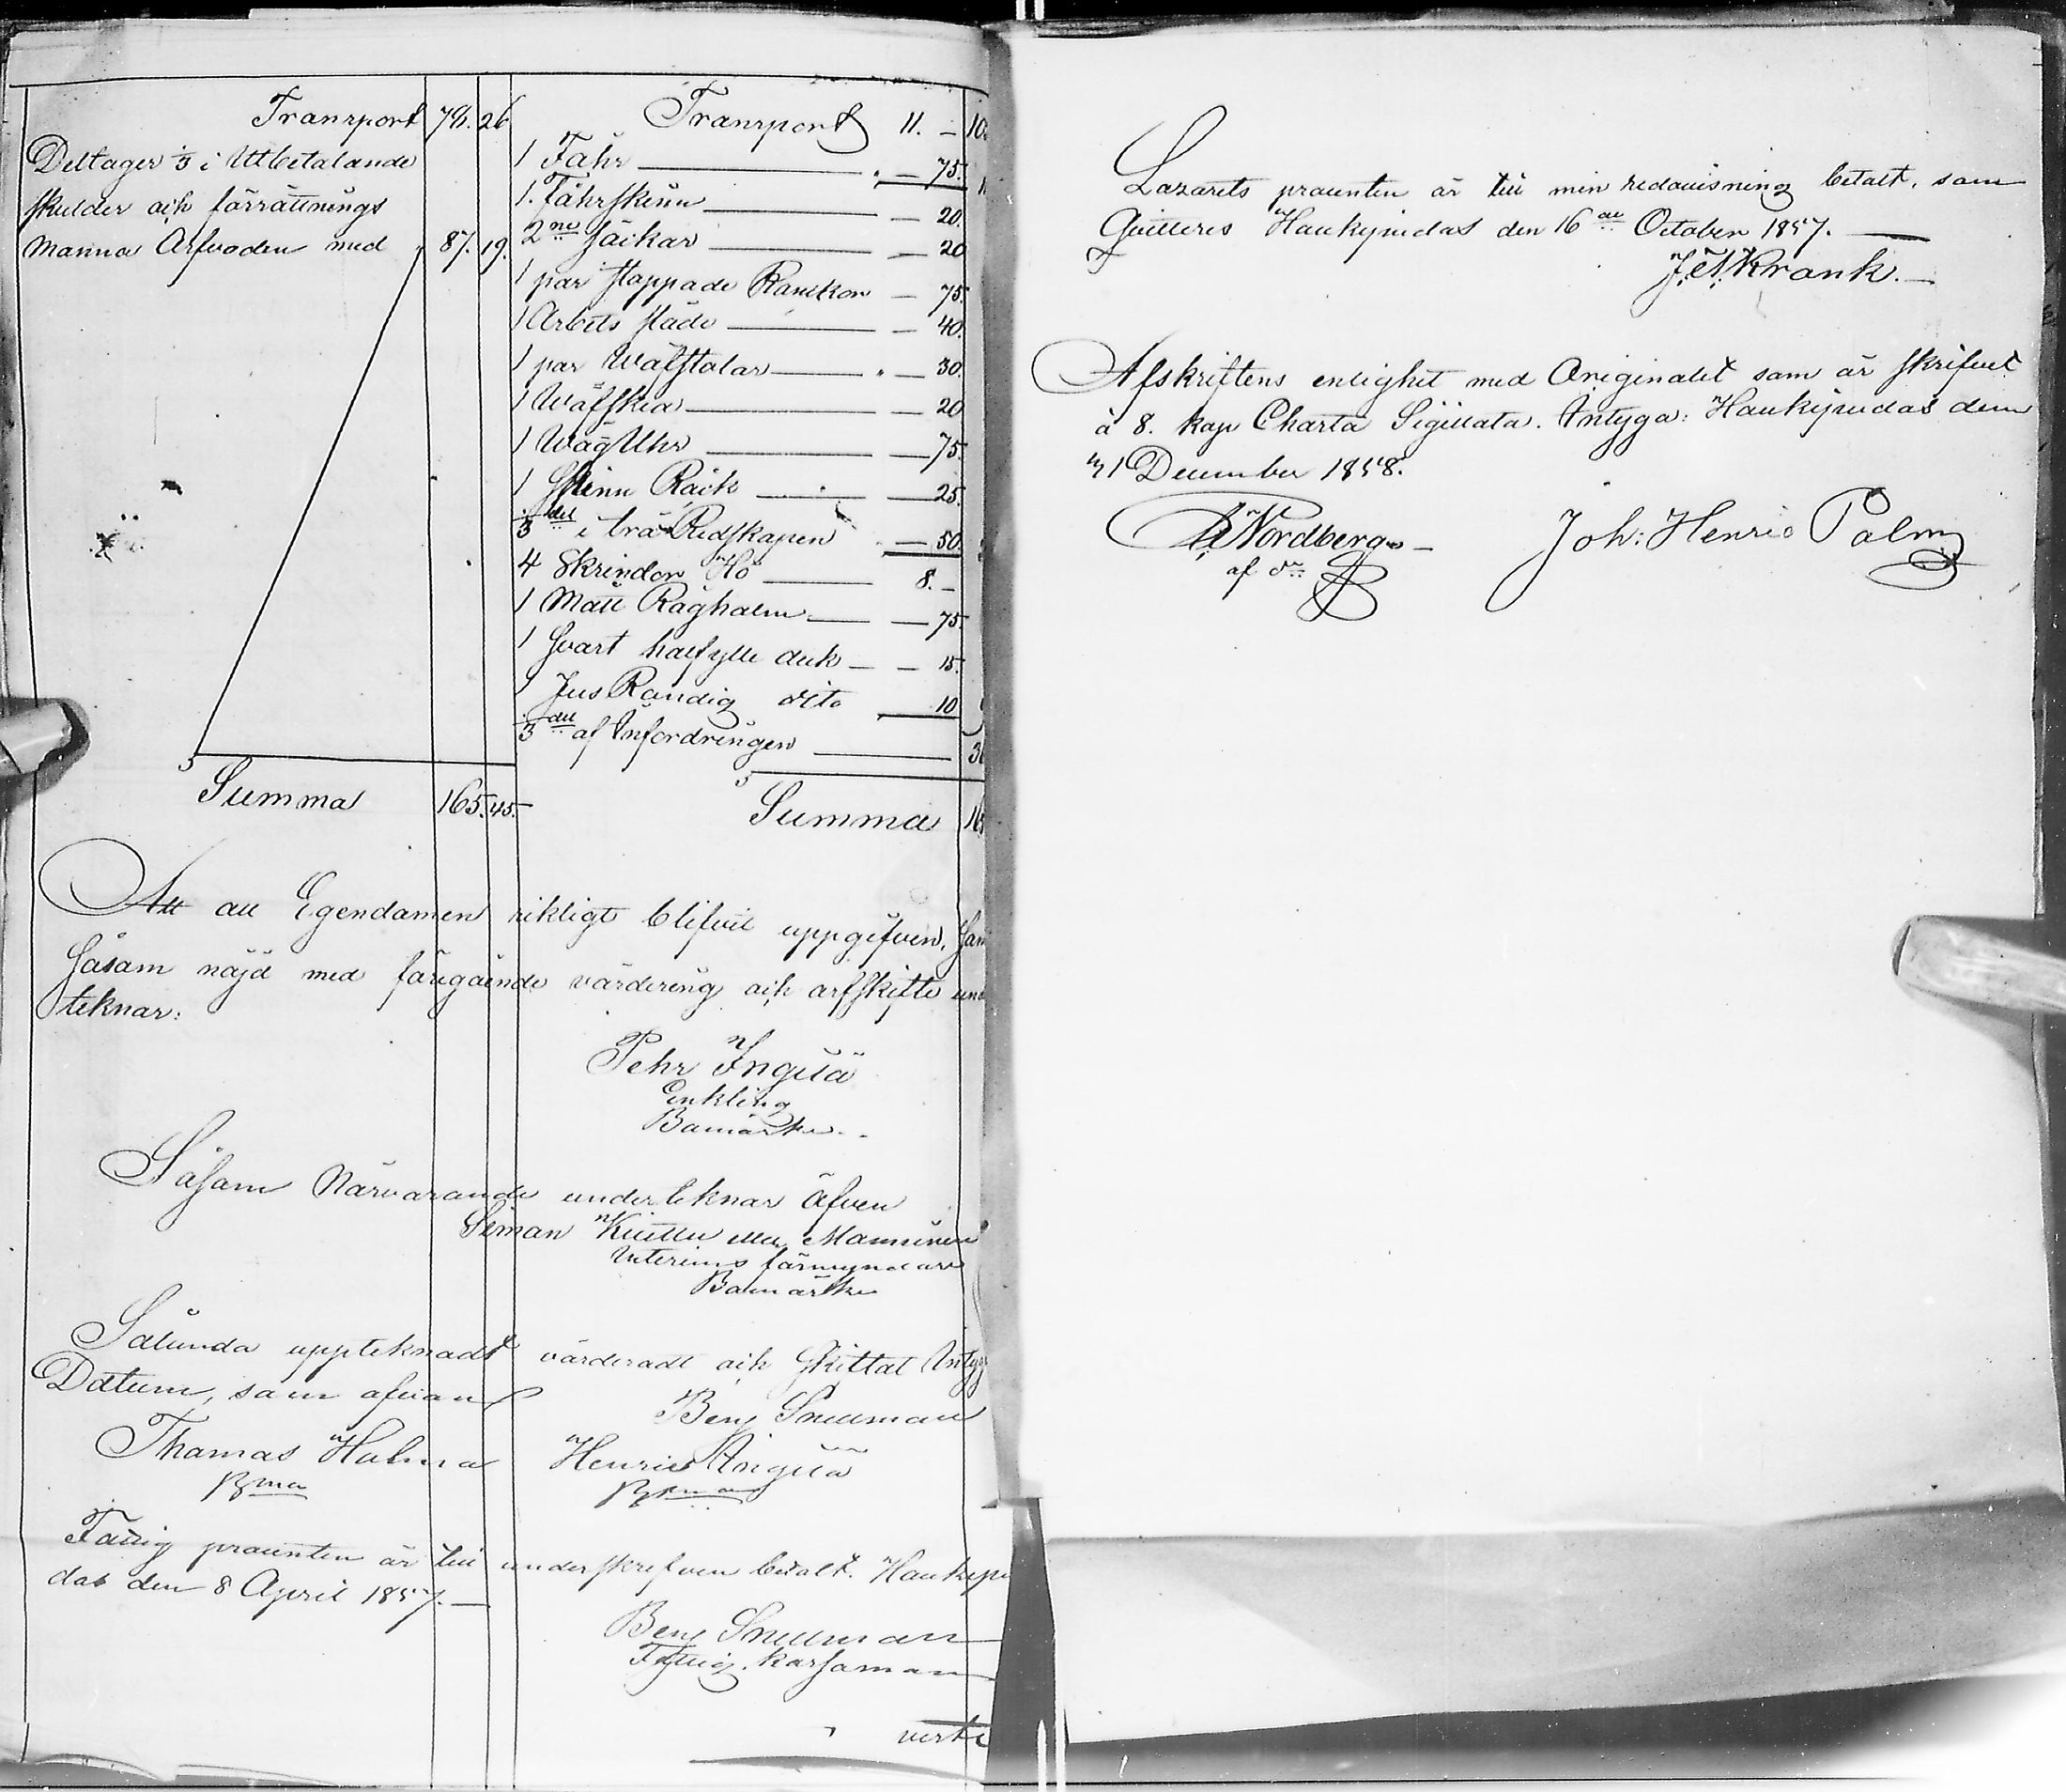 Transport 78. 26
Deltager 1/3 i Utbetalande
skulder och förrättnings
manna Arfvoden med 87. 19.
Summa 165. 45.
Transport 11. — 10
1 Fåhr — 75.
1. Fåhrskinn — 20.
2ne Säckar — 20
1 par stoppade Rankor — 75.
1 Arbets släde — 40.
1 par Wäfstolar — 30.
1 Wäfsked — 20
1 Wägg Uhr — 75.
1 Skinn Räck — 25.
1/3 del i trä Redskapen — 50.
4 Skrindor Hö — 8. –
1 Mått Råghalm — 75.
1 Svart halfylle duk — 15.
1 Ljus Randig dito 10
1/3 del af Infordringen — 3
Summa 16
Att all Egendomen riktigt blifvit uppgifven, Sam
Såsom nöjd med föregående värdering och arfskifte und
teknar:
Pehr Ingilä
Enkling
Bomärke.
Såsom Närvarande underteknar äfven
Siman Kiuttu eller Manninen
Interims förmyndare
Bomärke
Sålunda uppteknadt värderadt och Skiftat Intyg
Datum, som ofvan
Benj Snellman
Thomas Holma Henric Ångilä
Fattig procenten är till underskrefven betalt. Haukipu
das den 8 April 1857. —
Benj Snellman
Fattig. Kassaman
verte
Lazarets procenten är till min redovisning betalt, som
Qvitteres Haukipudas den 16de October 1857. —
J. A. Krank. —
Afskriftens enlighet med Originalet som är skrifvet
å 8. kop Charta Sigillata. Intyga: Haukipudas dem
31 December 1858.
Nordberg Joh: Henric Palm
af dn